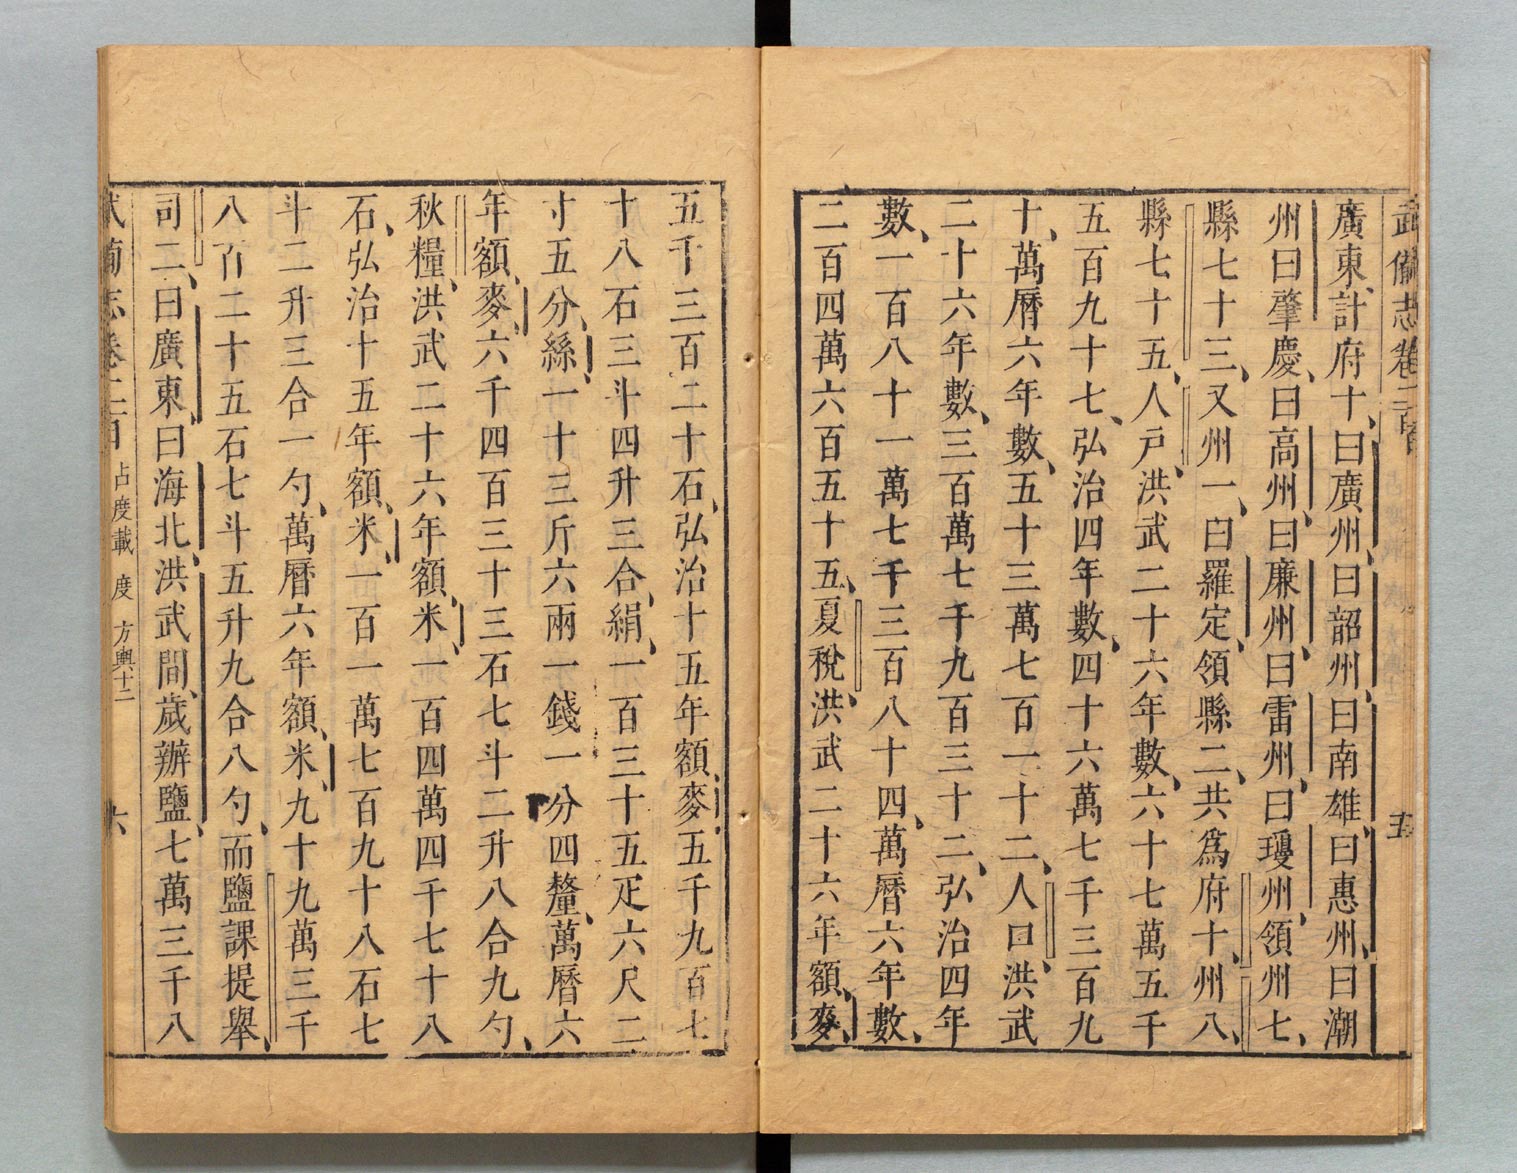 武備志卷二百 五
廣東、計府十、曰廣州、曰韶州、曰南雄、曰惠州、曰潮
州曰肇慶、曰高州、曰廉州、曰雷州、曰瓊州、領州七、
縣七十三、又州一、曰羅定、領縣二、共爲府十、州八、
縣七十五、人戶、洪武二十六年數、六十七萬五千
五百九十七、弘治四年數、四十六萬七千三百九
十、萬曆六年數、五十三萬七百一十二、人口、洪武
二十六年數、三百萬七千九百三十二、弘治四年
數、一百八十一萬七千三百八十四、萬曆六年數、
二百四萬六百五十五、夏稅、洪武二十六年額、麥、
五千三百二十石、弘治十五年額、麥、五千九百七
十八石三斗四升三合、絹、一百三十五疋六尺二
寸五分、絲、一十三斤六兩一錢一分四釐、萬曆六
年額、麥、六千四百三十三石七斗二升八合九勺、
秋糧、洪武二十六年額、米、一百四萬四千七十八
石、弘治十五年額、米、一百一萬七百九十八石七
斗二升三合一勺、萬曆六年額、米、九十九萬三千
八百二十五石七斗五升九合八勺、而鹽課提舉、
司二、曰廣東、曰海北、洪武間、歲辦鹽、七萬三千八
武備志卷二百 占度載 度 方輿十二 六